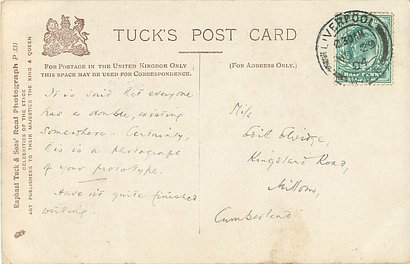 TUCK'S POST CARD
FOR POSTAGE IN THE UNITED KINGDOM ONLY
THIS SPACE MAY BE USED FOR CORRESPONDENCE.
(FOR ADDRESS ONLY.)
Raphael Tuck & Sons' Real Photograph P
CELEBRITIES OF THE STAGE
ART PUBLISHERS TO THEIR MAJESTIES THE KING & QUEEN
It is said that everyone
has a double, existing
somewhere. Certainly,
this is a photograph
of your prototype.
Haven't quite finished
writing.
Miss
Edith
Kingsland Road,
Millom,
Cumberland
LIVERPOOL
2.30 PM
HALFPENNY